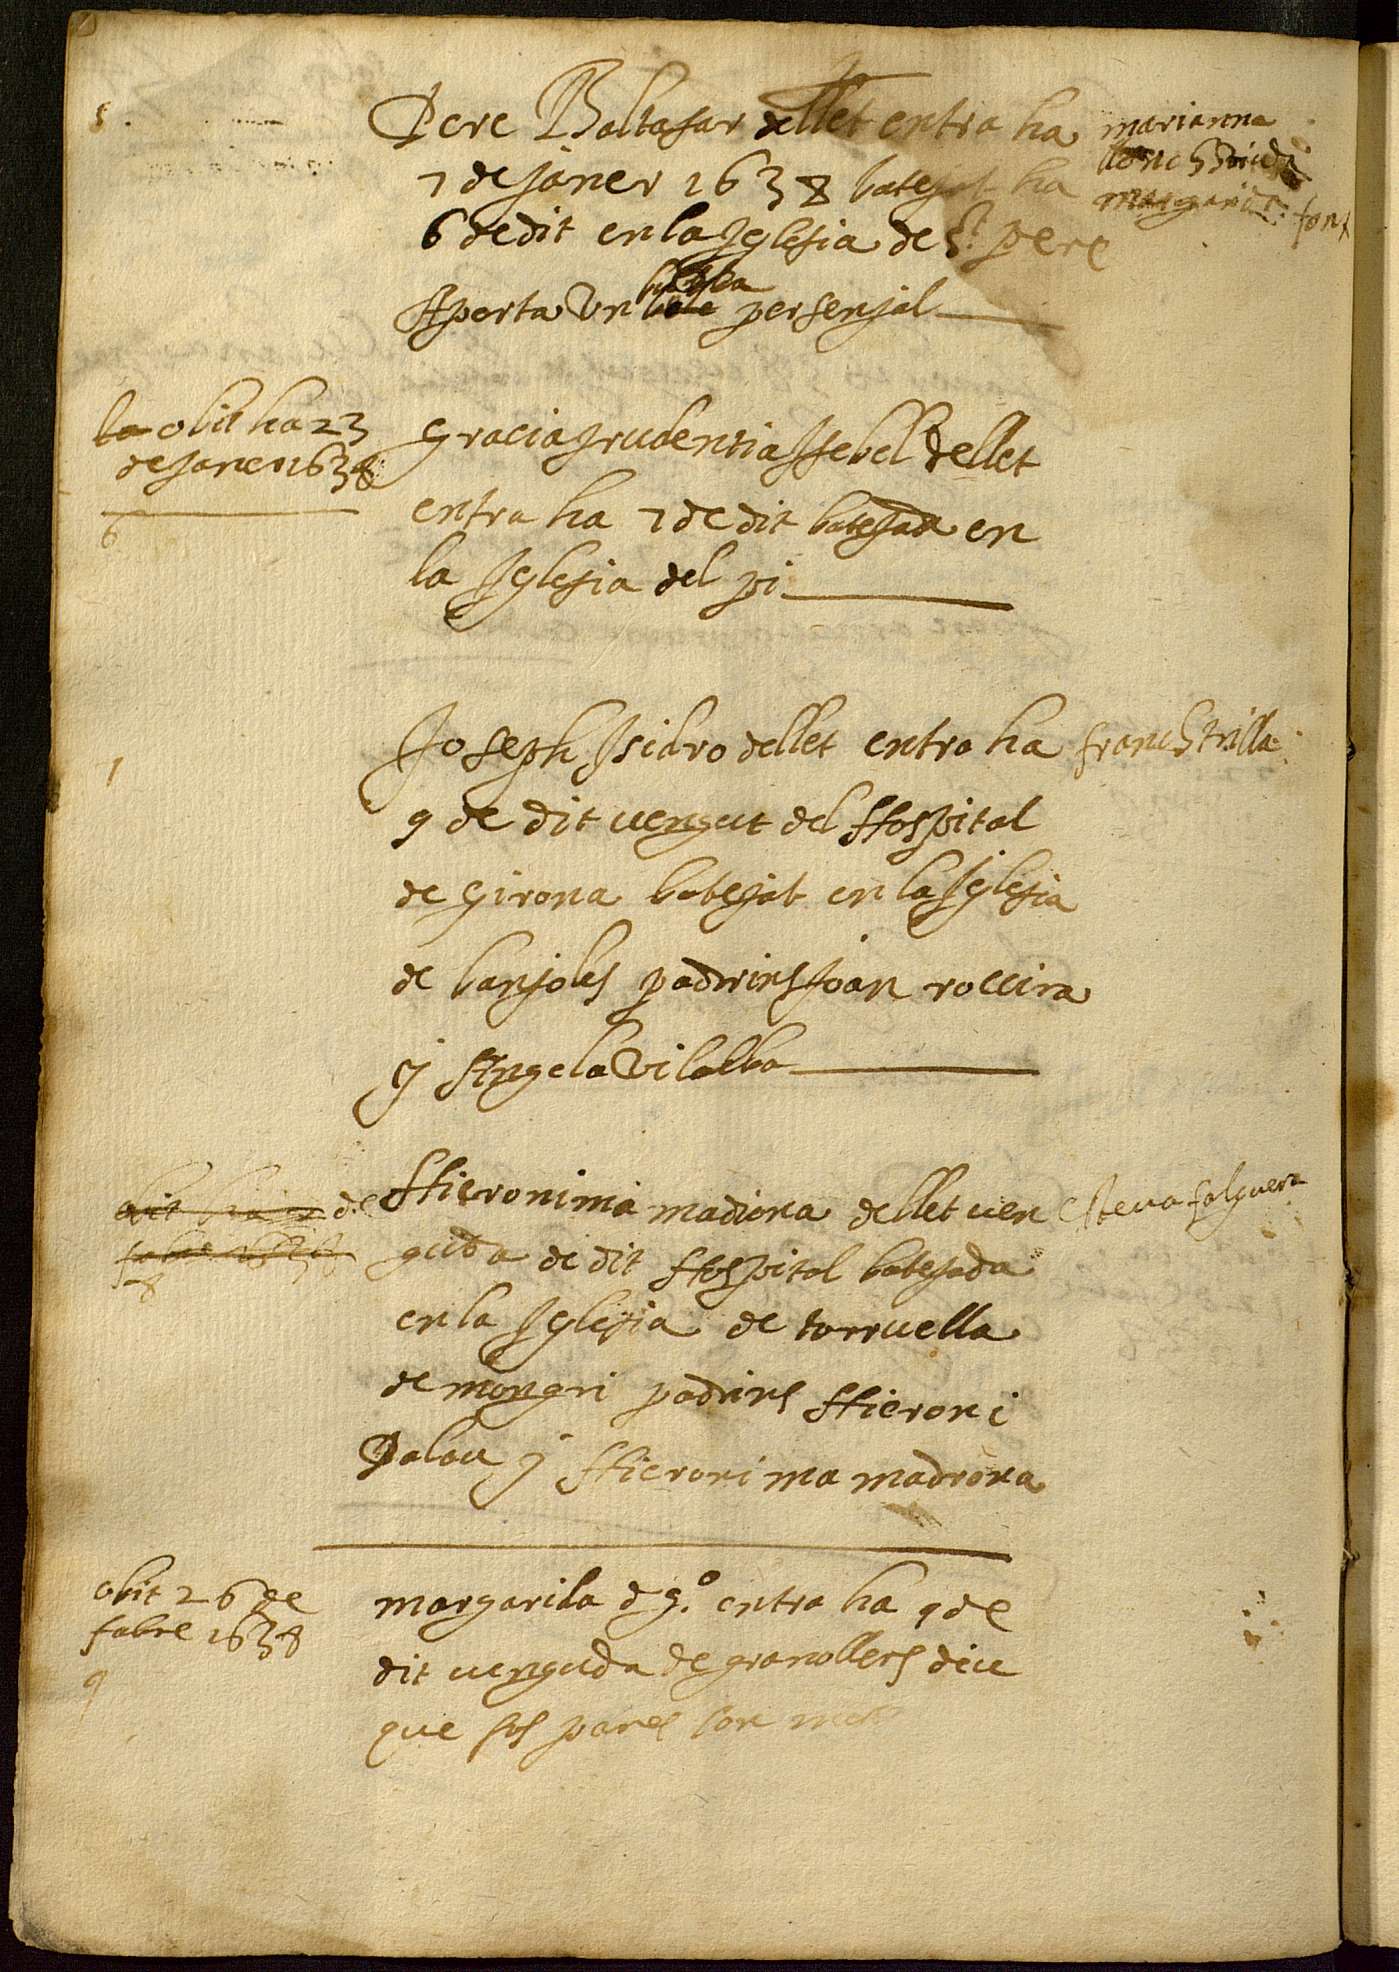 Pere Baltasar dellet entra ha
7 de janer 1638 batejat ha
6 de dit en la Iglesia de St. pere
Aporta Vn per senjal
marianna
viuda
margarida font
la obit ha 23
de janer 1638
6
Gracia prudentia Isebel dellet
entra ha 7 de dit batejada en
la Iglesia del pi
1
Joseph Isidro dellet entra ha
9 de dit vengut del Hospital
de Girona batejat en la Iglesia
de banjoles padrins Joan rovira
y Angela Vilalba
franch trilla
obit ha de
fabre 1638
8
Hieronima madrona dellet ven
guda de dit Hospital batejada
en la Iglesia de torruella
de mongri padrins Hieroni
Palau y Hieronima madrona
Steva falguera
obit 26 de
fabre 1638
9
margarida d g.º entra ha 9 de
dit venguda de granollers diu
que sos pares son